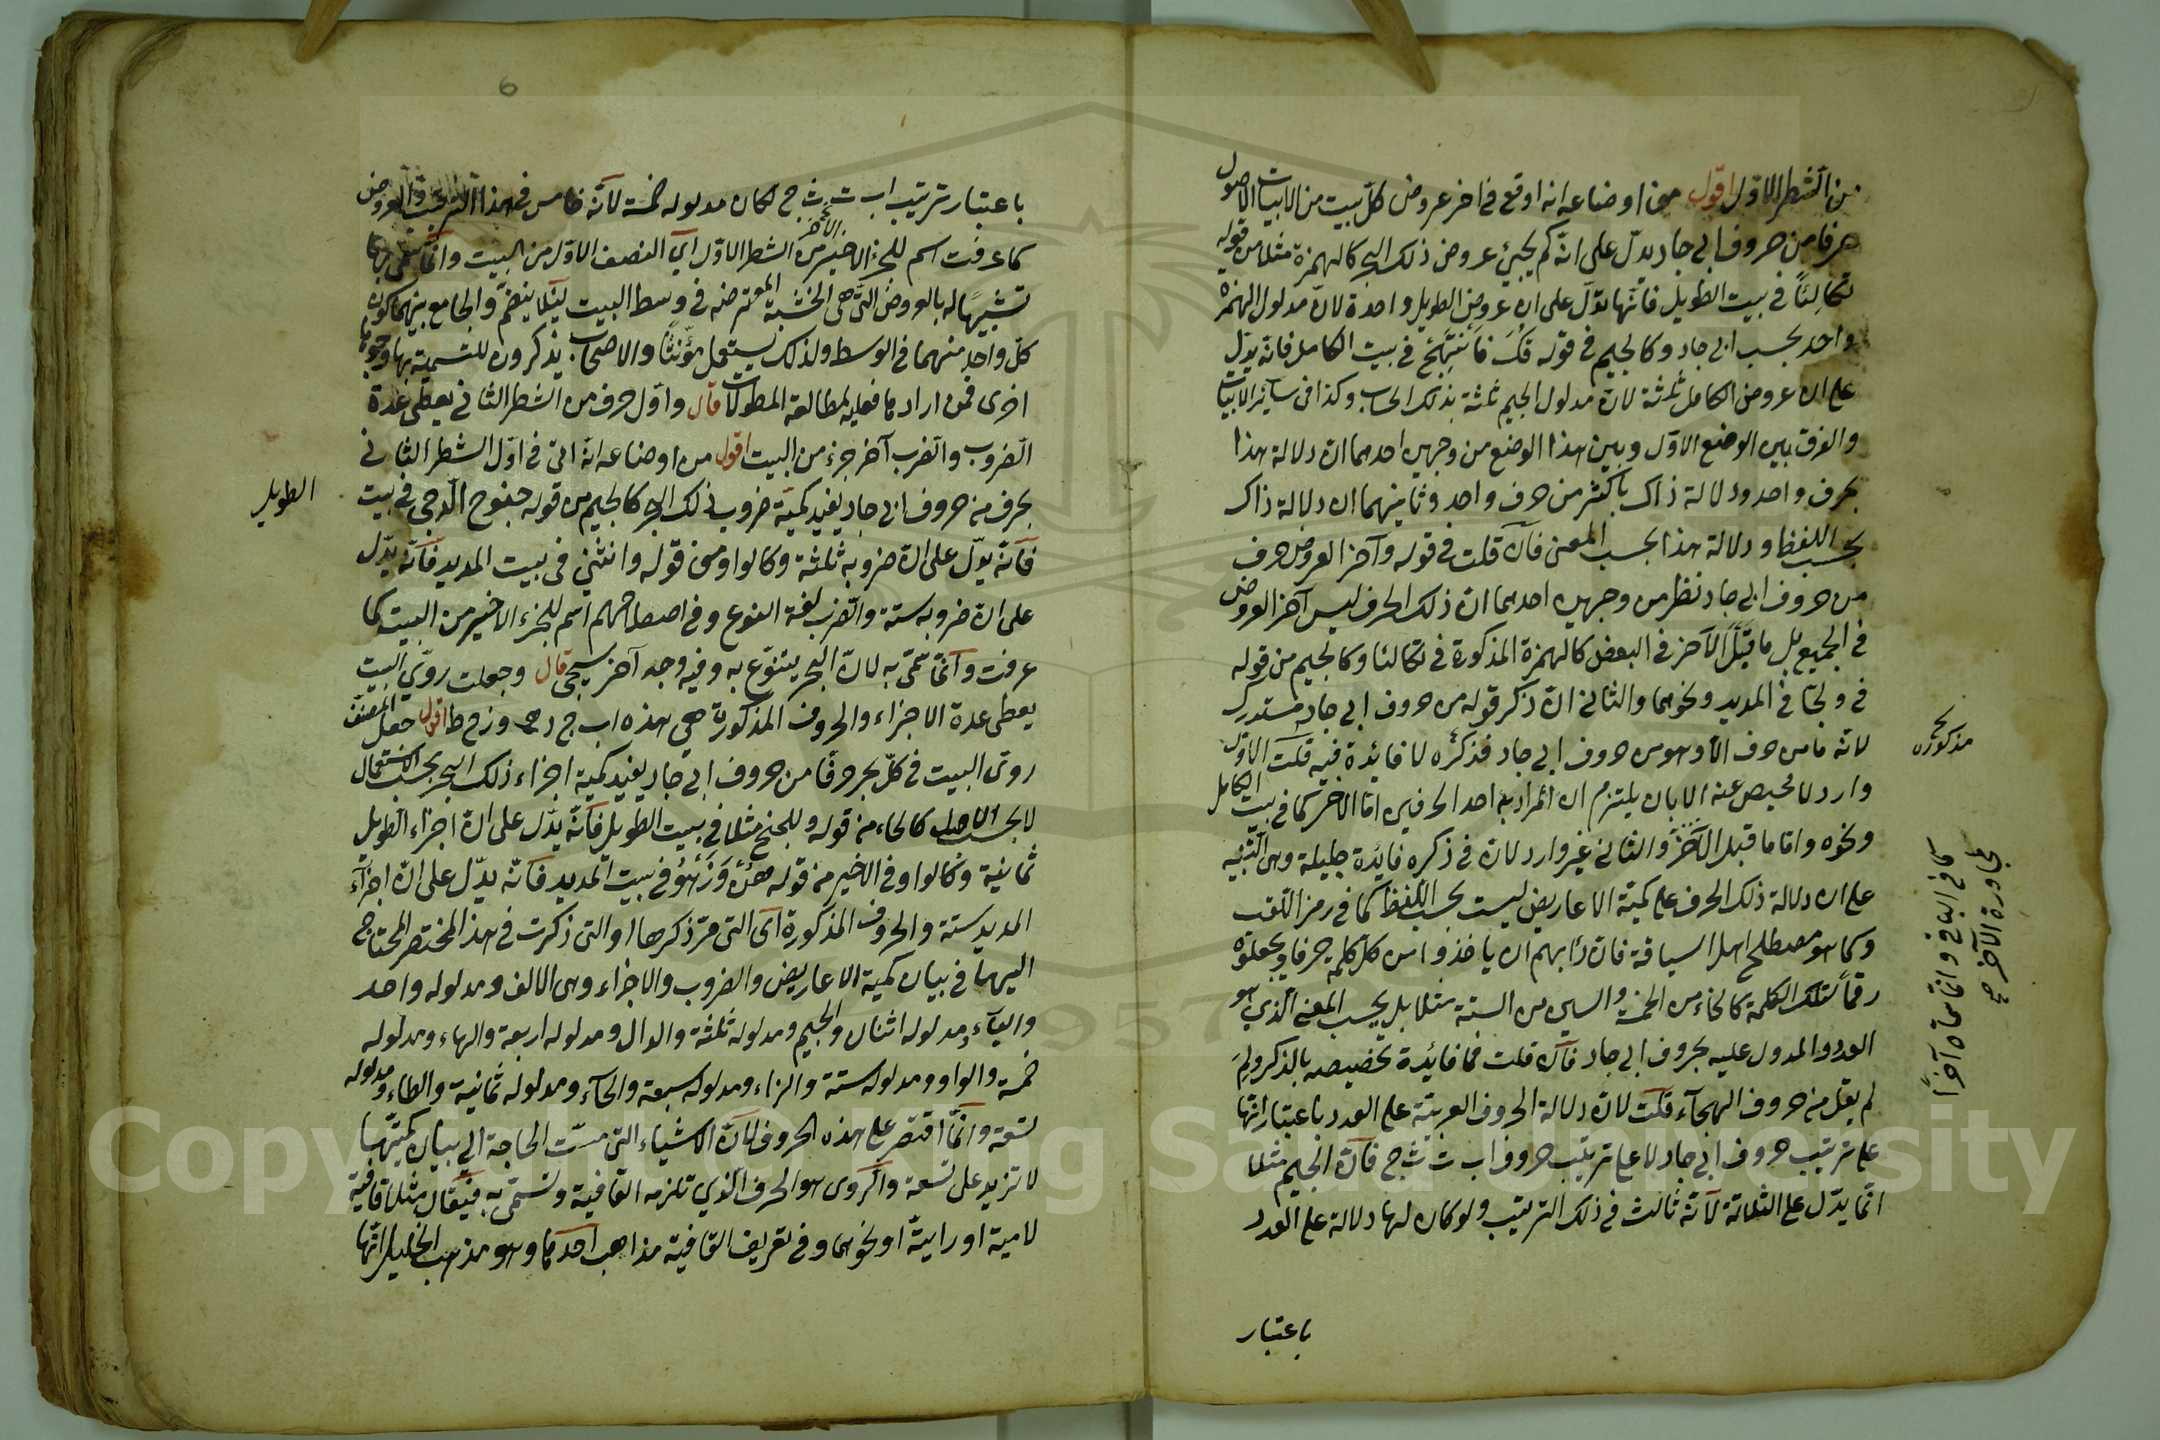 من الشطر الاول اقول من اوضاعه انه اوقع في اخر عروض كل بيت من الابيات الاصول
حرفا من حروف ابي جاد يدل على انه كم يجيئ عروض ذلك البحر كالهمزة مثلا من قوله
تكالئا في بيت الطويل فانها تدل على ان عروض الطويل واحدة لان مدلول الهمزة
واحد بحسب ابي جاد وكالجيم في قوله في بيت الكامل فانه يدل
على ان عروض الكامل ثلثة لان مدلول الجيم ثلثة بذلك الحساب وكذا في سائر الابيات
والفرق بين الوضع الاول وبين هذا الوضع من وجهين احدهما ان دلالة هذا
بحرف واحد ودلالة ذاك باكثر من حرف واحد وثانيهما ان دلالة ذاك
بحسب اللفظ ودلالة هذا بحسب المعنى فان قلت في قوله وآخر العروض حرف
من حروف ابي جاد نظر من وجهين احدهما ان ذلك الحرف ليس آخر العروض
في الجميع بل ما قبل الآخر في البعض كالهمزة المذكورة في تكالئا وكالجيم من قوله
في ولجا في المديد ونحوهما والثاني ان ذكر قوله من حروف ابي جاد مستدرك
لانه ما من حرف الا وهو من حروف ابي جاد فذكره لا فائدة فيه قلت الاول
وارد لا محيص عنه الا بان يلتزم ان المراد به احد الحرفين اما الاخر كما في بيت الكامل
ونحوه واما ما قبل الآخر والثاني غير وارد لان في ذكره فايدة جليلة وهى التنبيه
على ان دلالة ذلك الحرف على كمية الاعاريض ليست بحسب اللفظ كما في رمز اللقب
وكما هو مصطلح اهل السياقة فان دابهم ان ياخذوا من كل كلمة حرفا ويجعلوه
رقما لتلك الكلمة كالخاء من الخمسة والسين من الستة مثلا بل بحسب المعنى الذي هو
العدد المدلول عليه بحروف ابي جاد فان قلت فما فايدة تخصيصه بالذكر ولم
لم يقل من حروف الهجاء قلت لان دلالة الحروف العربية على العدد باعتبار انها
على ترتيب حروف ابي جاد لا على ترتيب حروف اب ت ث ج فان الجيم مثلا
انما يدل على الثلاثة لانه ثالث في ذلك الترتيب ولو كان لها دلالة على العدد
باعتبار
مذكورة
كما في الباقي وانما سماه آخرا
لمجاورة الآخر صح
6
باعتبار ترتيب اب ت ث ج لكان مدلوله خمسة لانه خامس في هذا الترتيب والعروض
كما عرفت اسم للجزء الاخير من الشطر الاول اي النصف الاول من البيت وانما سمى بها
تشبيها له بالعروض التي هى الخشبة المعترضة في وسط البيت لئلا ينضم والجامع بينهما كون
كل واحد منهما في الوسط ولذلك يستعمل مؤنثا والاصحاب يذكرون للتسمية بها وجوها
اخرى فمن اراد ها فعليه بمطالعة المطولات قال واول حرف من الشطر الثاني يعطى عدة
الضروب والضرب آخر جزء من البيت اقول من اوضاعه انه اتى في اول الشطر الثاني
بحرف من حروف ابي جاد يفيد كمية ضروب ذلك البحر كالجيم من قوله جنوح الدجى في بيت
الطويل
فانه يدل على ان ضروبه ثلثة وكالواو من قوله وانثني في بيت المديد فانه يدل
على ان ضروبه ستة والضرب لغة النوع وفي اصطلاحهم اسم للجزء الاخير من البيت كما
عرفت وانما سمى به لان البحر يتنوع به وفيه وجه آخر سيجئ قال وجعلت روى البيت
يعطى عدة الاجزاء والحروف المذكورة هى هذه اب ج د ه و ز ح ط اقول جعل المصنف
روى البيت في كل بحر حرفا من حروف ابي جاد يفيد كمية اجزاء ذلك البحر بحسب الاستعمال
لا بحسب الاصل كالحاء من قوله وللجنح مثلا في بيت الطويل فانه يدل على ان اجزاء الطويل
ثمانية وكالواو في الاخير من قوله في بيت المديد فانه يدل على ان اجزاء
المديد ستة والحروف المذكورة اى التى مر ذكرها او التى ذكرت في هذا المختصر المحتاج
اليها في بيان كمية الاعاريض والضروب والاجزاء وهى الالف ومدلوله واحد
والباء ومدلوله اثنان والجيم ومدلوله ثلثة والدال ومدلوله اربعة والهاء ومدلوله
خمسة والواو ومدلوله ستة والزاء ومدلوله سبعة والحاء ومدلوله ثمانية والطاء ومدلوله
تسعة وانما اقتصر على هذه الحروف لان الاشياء التى مست الحاجة الى بيان كميتها
لا تزيد على تسعة والروى هو الحرف الذي تلزمه القافية وتسمى به فيقال مثلا قافية
لامية او رايية او نحوهما وفي تعريف القافية مذاهب احدها وهو مذهب الخليل انها